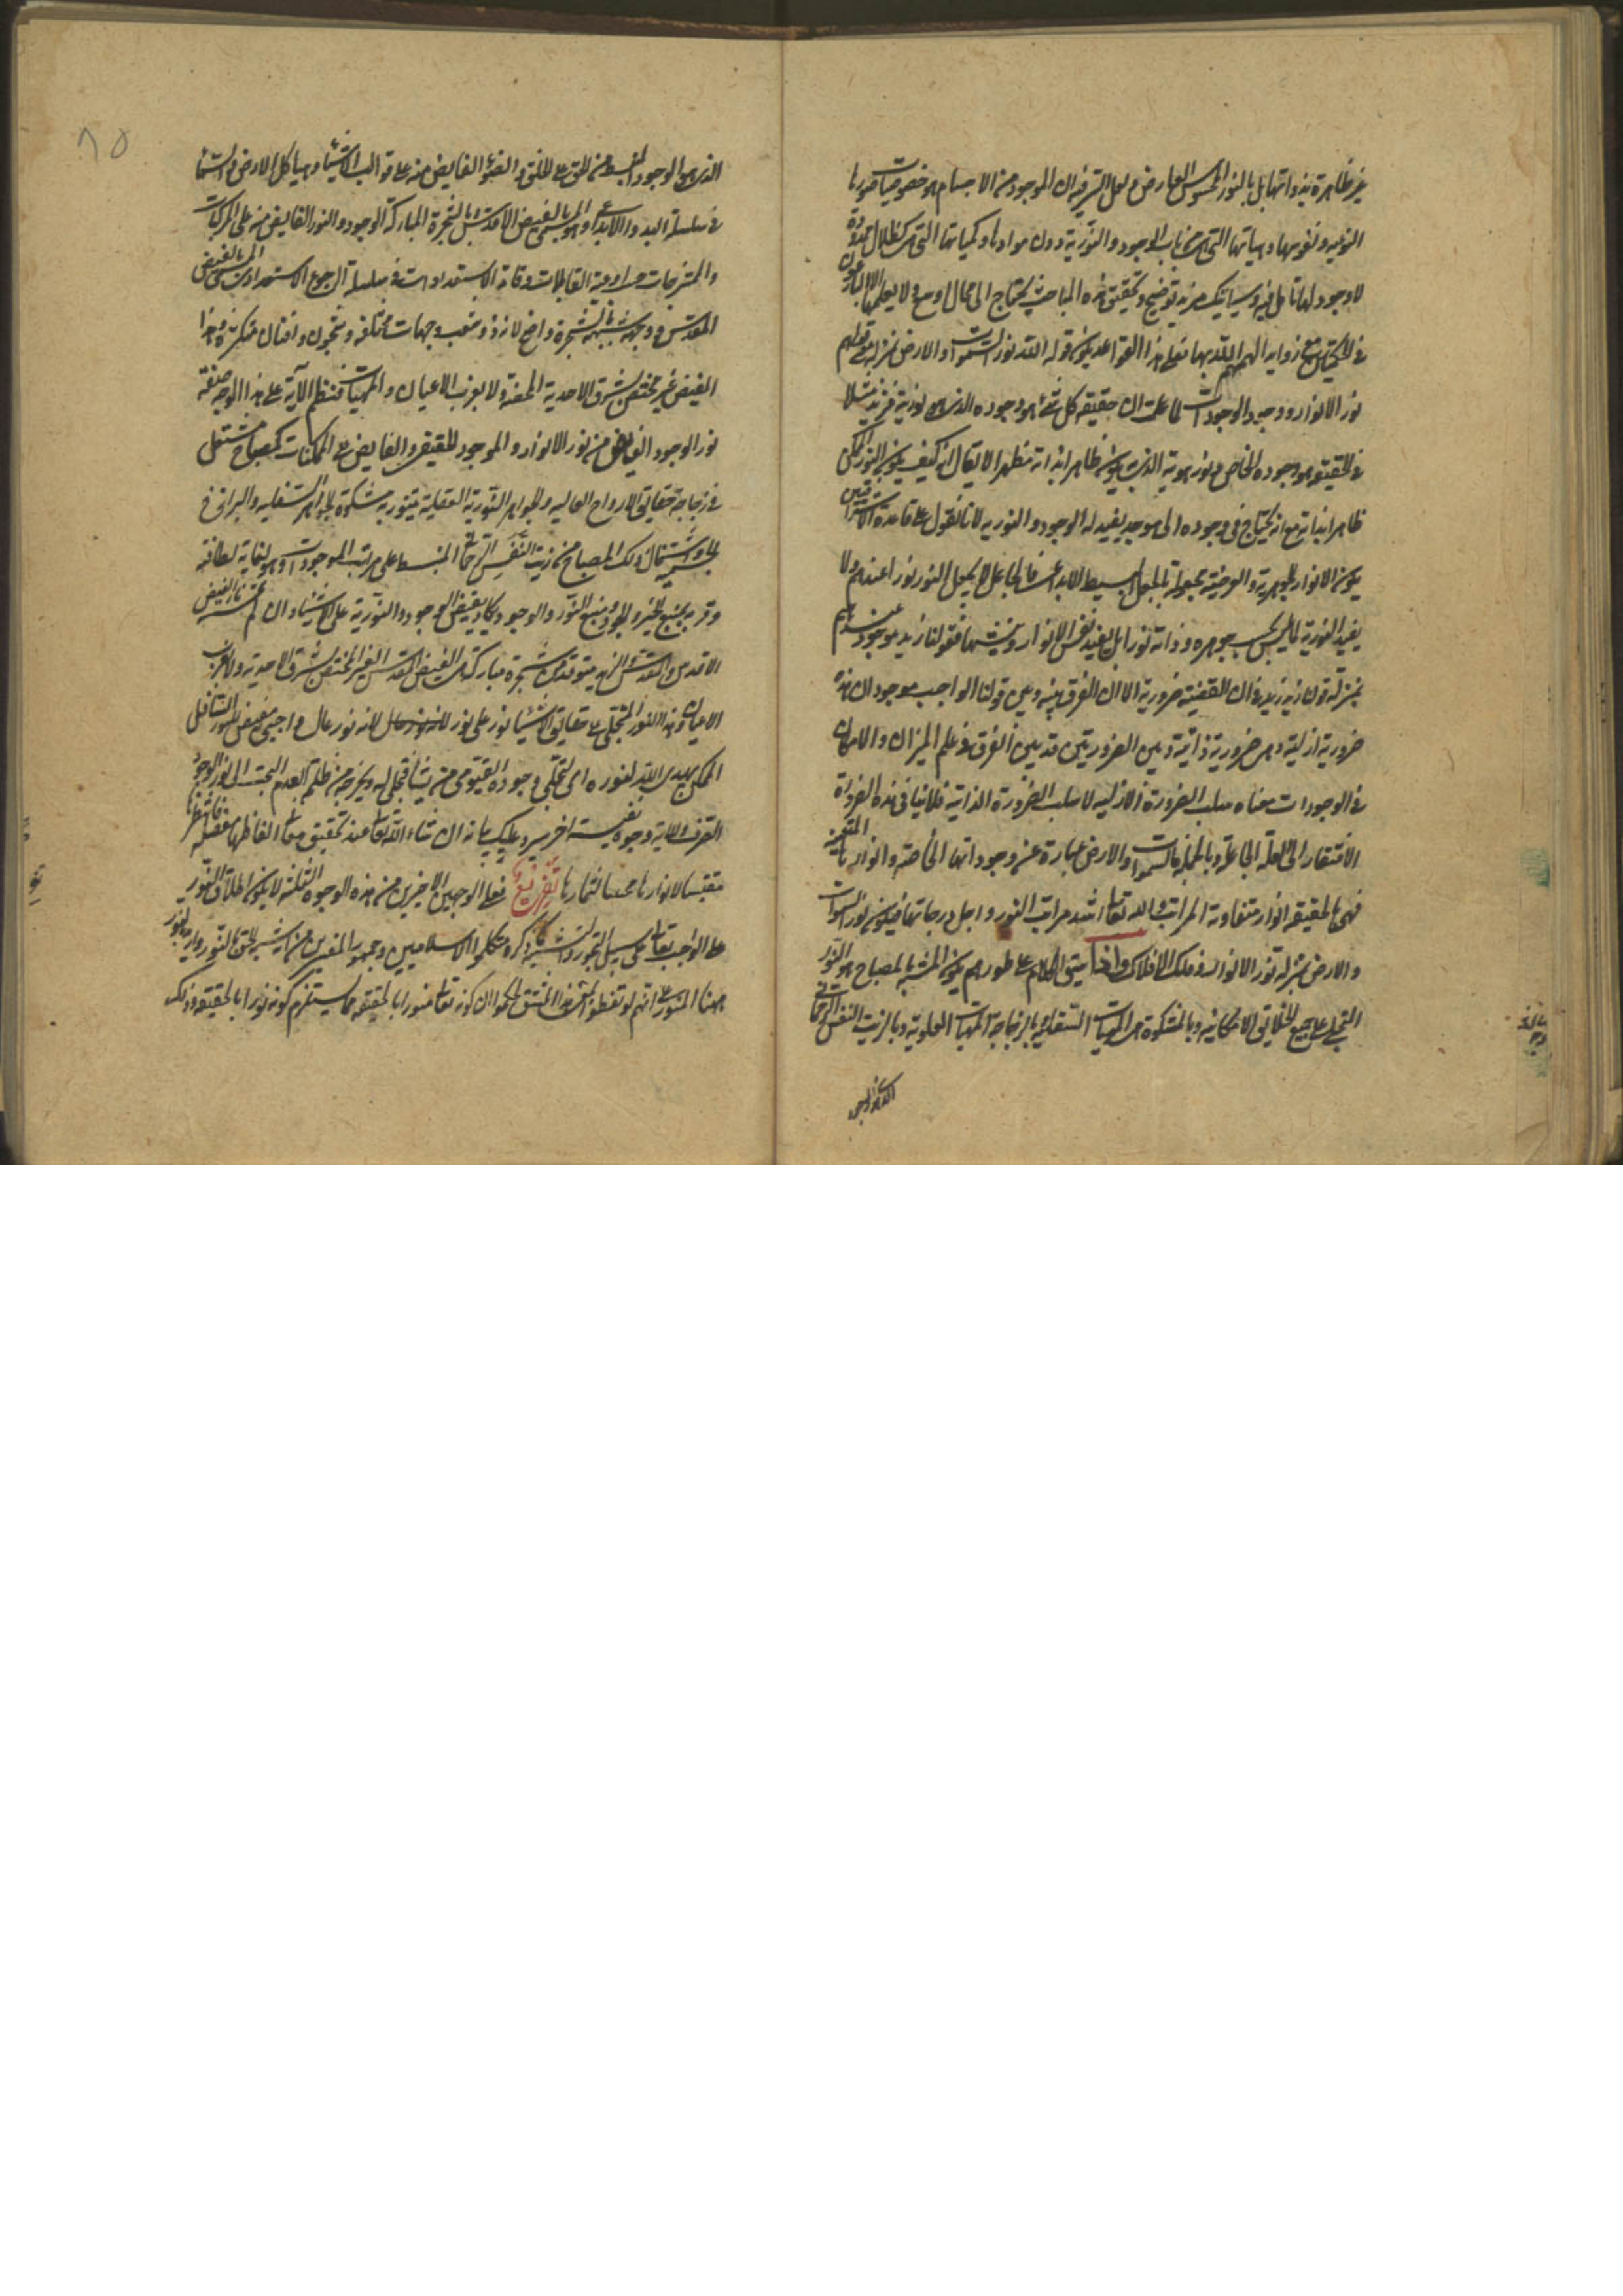 غیر ظاهرة بذواتها بل بالنور المحسوس العارض و لعل السر فیه ان الموجود من الاجسام هو خصوصیات صورها
النوعیه و نفوسها و هیاتها التی من باب الوجود و النوریة دون موادها و کمیاتها التی هی کظلال ممدودة
لا وجود لها تامل فیه و سیاتیک مزید توضیح و تحقیق هذه المباحث یحتاج الی مجال اوسع و لا یعلمها الا البارعون
فی الحکمتین مع زواید الهمهم الله بها فعلی هذا القواعد یکون قوله الله نور السموات و الارض بمنزلة قولهم
نور الانوار و وجود الوجودات لما علمت ان حقیقه کل شئ هو وجوده الذی هو نوریته فزید مثلا
فی الحقیقة هو وجوده الخاص و نور هویته الذی به یکون ظاهرا بذاته مظهرا لا یقال انه کیف یکون النور الممکن
ظاهرا بذاته مع انه یحتاج فی وجوده الی موجد یفید له الوجود و النوریه لانا نقول علی قاعدة الاشراقیین
یکون الانوار الجوهریة و العرضیة مجعولة بالجعل البسیط الابداعی فالجاعل لا یجعل النور نورا عندهم و لا
یفید النوریة لما لیس بحسب جوهره و ذاته نورا بل یفید نفس الانوار و شیئیتها فقولنا زید موجود عندهم
بمنزلة قولنا زید زید فی ان القضیة ضروریة الا ان الفرق بینه و بین قولنا الواجب موجود ان هذه
ضروریة ازلیة و هی ضروریة ذاتیة و بین الضرورتین قد بین الفرق فی علم المیزان و الامکان
فی الوجودات معناه سلب الضرورة الازلیه لا سلب الضرورة الذاتیه فلا ینافی هذه الضرورة
الافتقار الی العلة الجاعلة و بالجملة فالسموات و الارض عبارة عن وجوداتها الخاصة و انوارها المتعینه
فهی بالحقیقه انوار متفاوتة المراتب و الله تعالی اشد مراتب النور و اجل درجاتها فیکون نور السموات
و الارض بمنزلة نور الانوار و فلک الافلاک و اذا سیق الکلام علی طورهم یکون المشبه بالمصباح هو النور
المتجلی علی جمیع الحقایق الامکانیه و بالمشکوة هی المهیات السفلیه و بالزجاجة المهیات العلویة و بالزیت النفس الرحمانی
الذی هو الوجود
٨٥
الذی هو الوجود المنبسط من الحق علی الخلق و الضوء الفایض منه علی قوالب الاشیاء و هیاکل الارض و السماء
فی سلسلة البدو و الابداع و هو المسمی بالفیض الاقدس و بالشجرة المبارکة الوجود و النور الفایض منه علی المرکبات
و الممتزجات من اودیة القابلیات و قابة الاستعدادات فی سلسلة الرجوع الاستعدادی المسمی بالفیض
المقدس و وجه تشبیهه بالشجرة واضح لانه ذو شعب و جهات مختلفه و غصون و افنان متکثرة و هذا
الفیض غیر مختص بشرق الاحدیة المحضة و لا بغرب الاعیان و المهیات فنظم الآیة علی هذا الوجه صفة
نور الوجود الفایض من نور الانوار و الموجود الحقیقی و الفایض علی الممکنات کمصباح مشتعل
فی زجاجة حقایق الارواح العالیه و الجواهر النوریة العقلیة یتنور به مشکوة الجواهر السفلیه و البرازخ
الجسمیه و اشتعال ذلک المصباح من زیت النفس الرحمانی المنبسط علی مراتب الموجودات و هو لغایة لطافته
و قربه بمنبع الخیر و الجود و منبع النور و الوجود یکاد یفیض الوجود و النوریة علی الاشیاء و ان لم تمسسه نار الفیض
الاقدس و المقدس الذی یتوقد من شجرة مبارکة هی الفیض المقدس الغیر المختص بشرق الاحدیة و لا غرب
الاعیان و هذا النور المتجلی علی حقایق الاشیاء نور علی نور لانه نور عال واجبی مفیض للنور السافل
الممکنی یهدی الله لنوره ای لتجلی وجوده القیومی من یشاء فتجلی له و یخرجه من ظلمة العدم البحت الی نور الوجود
الصرف و للایة وجوه نفیسة اخر سیرد علیک بیانه ان شاء الله تعالی عند تحقیق معانی الفاظها مفصلة فانتظرها
مقتبسا لانوارها مجتنیا لثمارها تفریع فعلی الوجهین الاخیرین من هذه الوجوه الثلثه لا یکون اطلاق النور
علی الواجب تعالی علی سبیل التجوز و التشبیه کما ذکره متکلموا الاسلامیین و جمهور المفسرین من ان تسمیة الحق بالنور و ارید بالنور
ههنا المنور علی انهم لو تفطنوا لمعنی هذا المشتق لحکموا ان کونه تعالی منورا بالحقیقه مما یستلزم کونه نورا بالحقیقه و ذلک